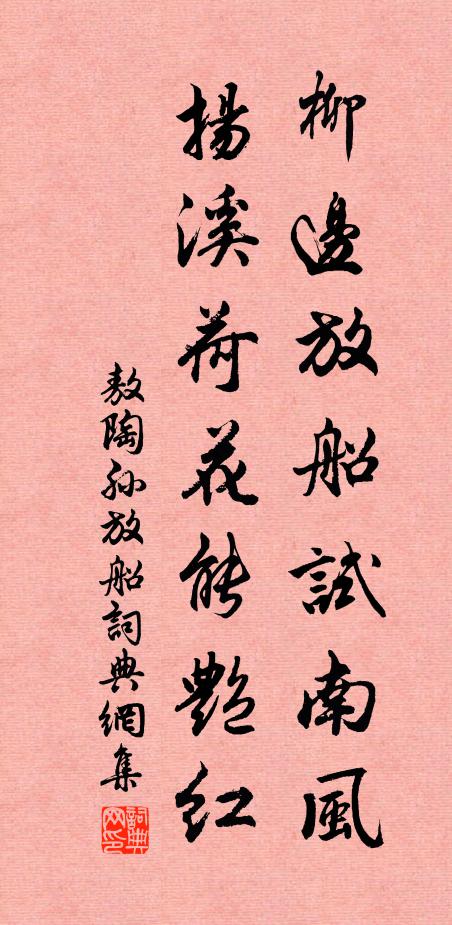 柳邊放船試南風
揚溪荷花能艷紅
敖陶孫放船詞典網集
詞典
网印